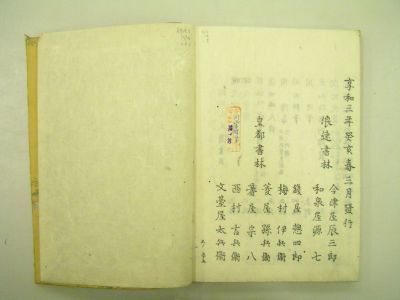 享和三年癸亥春三月發行
浪速書林
今津屋辰三郎
和泉屋源七
皇都書林
錢屋惣四郎
梅村伊兵衛
蓍屋孫兵衛
蓍屋宗八
西村吉兵衛
文臺屋太兵衛